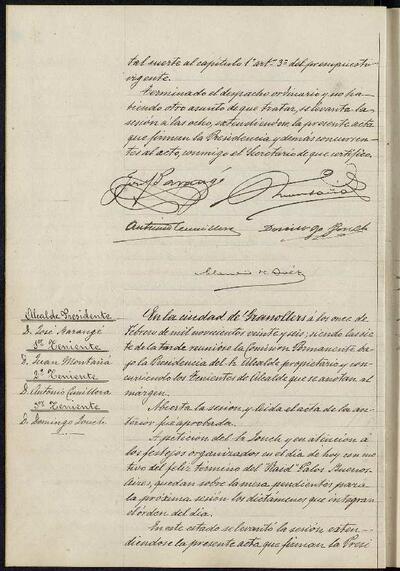 tal suerte al capítulo 1º artº 3º del presupuesto
vigente.
Terminado el despacho ordinario y no ha-
biendo otro asunto de que tratar, se levanta la
sesión a las ocho, extendiéndose la presente acta
que firman la Presidencia y demás concurren-
tes al acto, conmigo el Secretario de que certifico.
José Barangé
Montañá
Antonio Cumellera
Domingo Jonch
Alcalde Presidente
D. José Barangé
1er Teniente
D. Juan Montañá
2º Teniente
D. Antonio Cumellera
3er Teniente
D. Domingo Jonch
En la ciudad de Granollers á los once de
Febrero de mil novecientos veinte y seis; siendo las sie-
te de la tarde reunióse la Comisión Permanente ba-
jo la Presidencia del Sr. Alcalde propietario y con-
curriendo los Tenientes de Alcalde que se anotan al
margen.
Abierta la sesión y leída el acta de la an-
terior fué aprobada.
A petición del Sr. Jonch y en atención á
los festejos organizados en el día de hoy con mo-
tivo del feliz término del "Raid" Palos Buenos-
Aires, quedan sobre la mesa pendientes para
la próxima sesión los dictámenes que integran
el órden del día.
En este estado se levantó la sesión exten-
diéndose la presente acta que firman la Presi